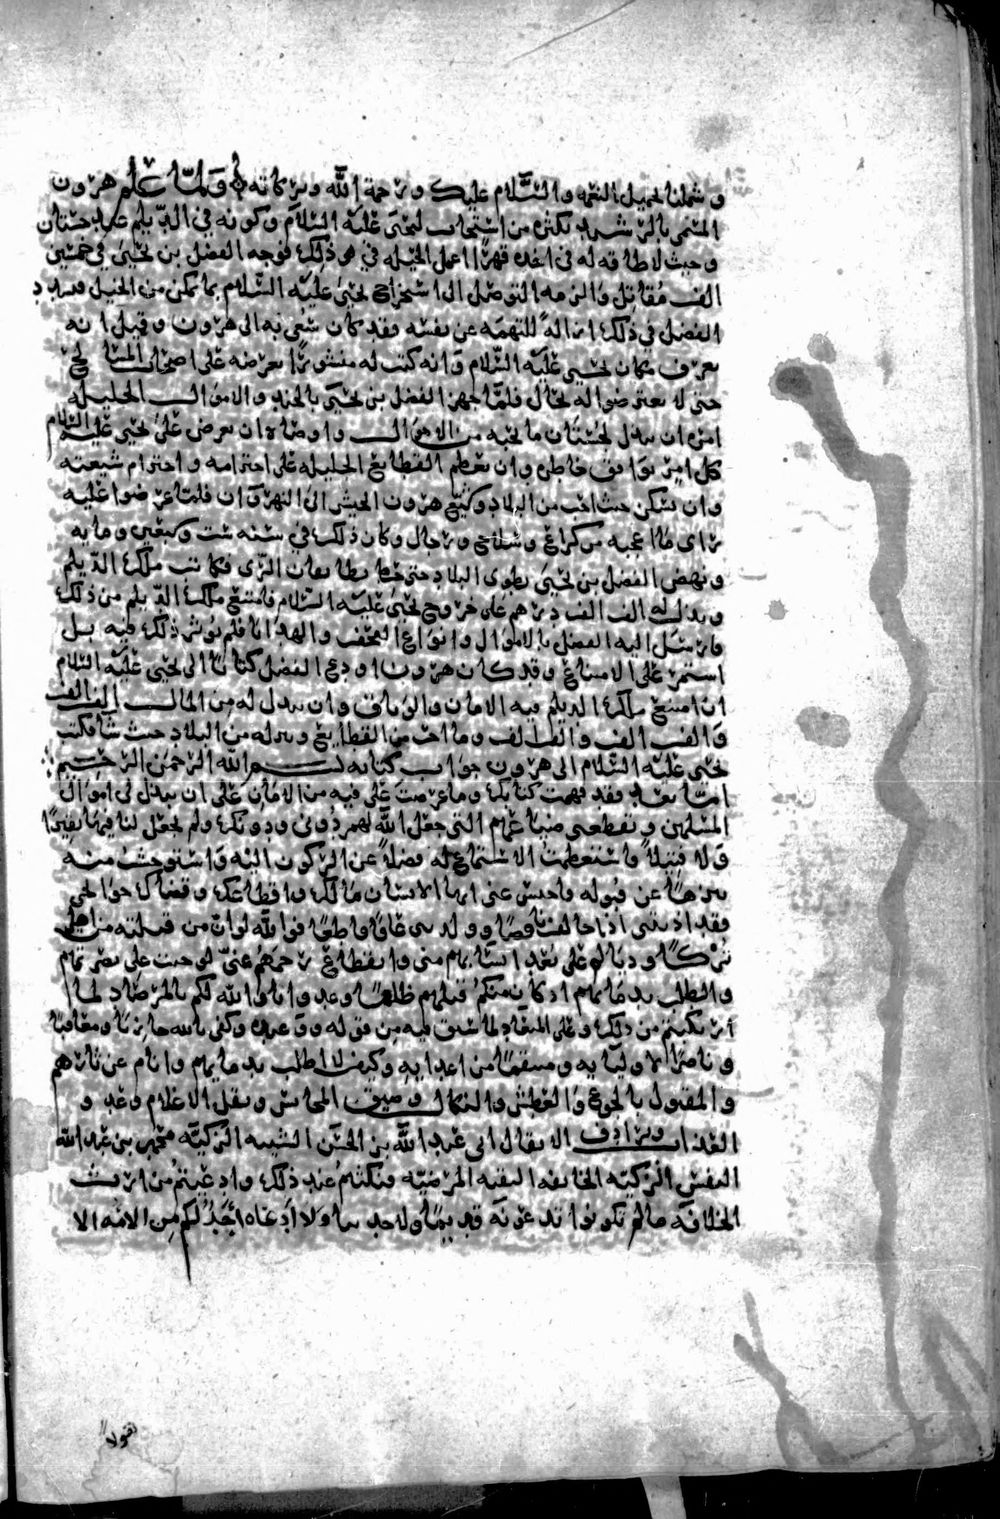 وشملنا بجميل النعمه والسَّلام عليك ورحمة الله وبركاته ولمّا علم هرون
المسمى بالرشيد بكثره من استجاب ليحيى عليه السلام وكونه في الديلم عند جستان
وحيث لا طاقه له في اخذه قهرًا اعمل الحيله في ذلك فوجه الفضل بن يحيى في خمسين
الف مقاتل والزمه التوصل الى استخراج يحيى عليه السّلام بما تمكن من الحيل
الفضل في ذلك ازالةً للتهمه عن نفسه فقد كان سُعي به الى هرون وقيل انه
يعرف مكان يحيى عليه السّلام وانه كتب له منشورًا يعرضه على اصحاب المسالح
حتى لا يعترضوا له بحال فلمّا جهز الفضل بن يحيى بالجند والاموال الجليله
امره ان يبذل لجستان ما يحبه من الاموال واوصاه ان يعرض على يحيى عليه السلام
كل امر يوافق خاطره وان يعطم القطايع الجليله على احترامه واحترام شيعته
وان يسكن حيث احب من البلاد هرون الجيش الى النهروان فلمّا عرضوا عليه
راى ما اعجبه من كراع وسلاح ورجال وكان ذلك في سنه ست وسبعين ومايه
ونهض الفضل بن يحيى يطوى البلاد حتى حط الرّى فكاتب ملك الديلم
وبذل له الف الف درهم على خروج يحيى عليه السّلام فامتنع ملك الديلم من ذلك
فارسل اليه الفضل بالاموال وانواع التحف والهدايا فلم يؤثر ذلك فيه بل
استمر على الامتناع وقد كان هرون اودع الفضل كتابًا الى يحيى عليه السلام
ان امتنع ملك الديلم فيه الامان وان يبذل له من المال الف الف
والف الف وما احب من القطايع وينزله من البلاد حيث شا فكتب
يحيى عليه السّلام الى هرون جواب كتابه بسم الله الرحمن الرحيم
امّا بعد فقد فهمت كتابك وما عرضت علي فيه من الامان على ان تبذل لي اموال
المسلمين وتقطعني ضياعهم التي جعل الله لهم دُوني ودونك ولم يجعل لنا فيها نقيرًا
ولا فتيلاً فاستعظمت الاستماع له فضلاً عن الركون اليه واستوحشت منه
تنزهًا عن قبوله فاحبس عني ايها الانسان مالك واقطاعك وقضاك حوايجي
فقد ادبتني اذًا ناقصًا وولدتني عاقًا قاطعًا فوالله لو ان من قتلته من اهلي
تُركًا وديالم على بُعد انسابهم مني وانقطاع رحمهم عنّي لوجبت علي نصرتهم
والطلب بدمايهم اذ كان منكم قتلهم ظلمًا وعدوانًا والله لكم بالمرصاد لما
ارتكبتم من ذلك وعلى الميعاد لما سبق فيه من قوله ووعيده وكفى بالله جازيًا ومعاقبًا
وناصرًا لاوليايه ومنتقمًا من اعدايه وكيف لا اطلب بدمايهم وانام عن ثارهم
والمقتول بالجوع والعطش والنكال وضيق المحابس وثقل الاغلام وعدو
العذاب وترادف الاثقال ابي عبد الله بن الحسن النفس الزكيّه محمد بن عبد الله
النفس الزكيّه البقيه المرضيّه عند ذلك وادعيتم من ارث
الخلافه ما لم تكونوا تدعونه قديمًا ولا حديثًا ولا ادعاه احدٌ لكم من الامّه الا
تقولا